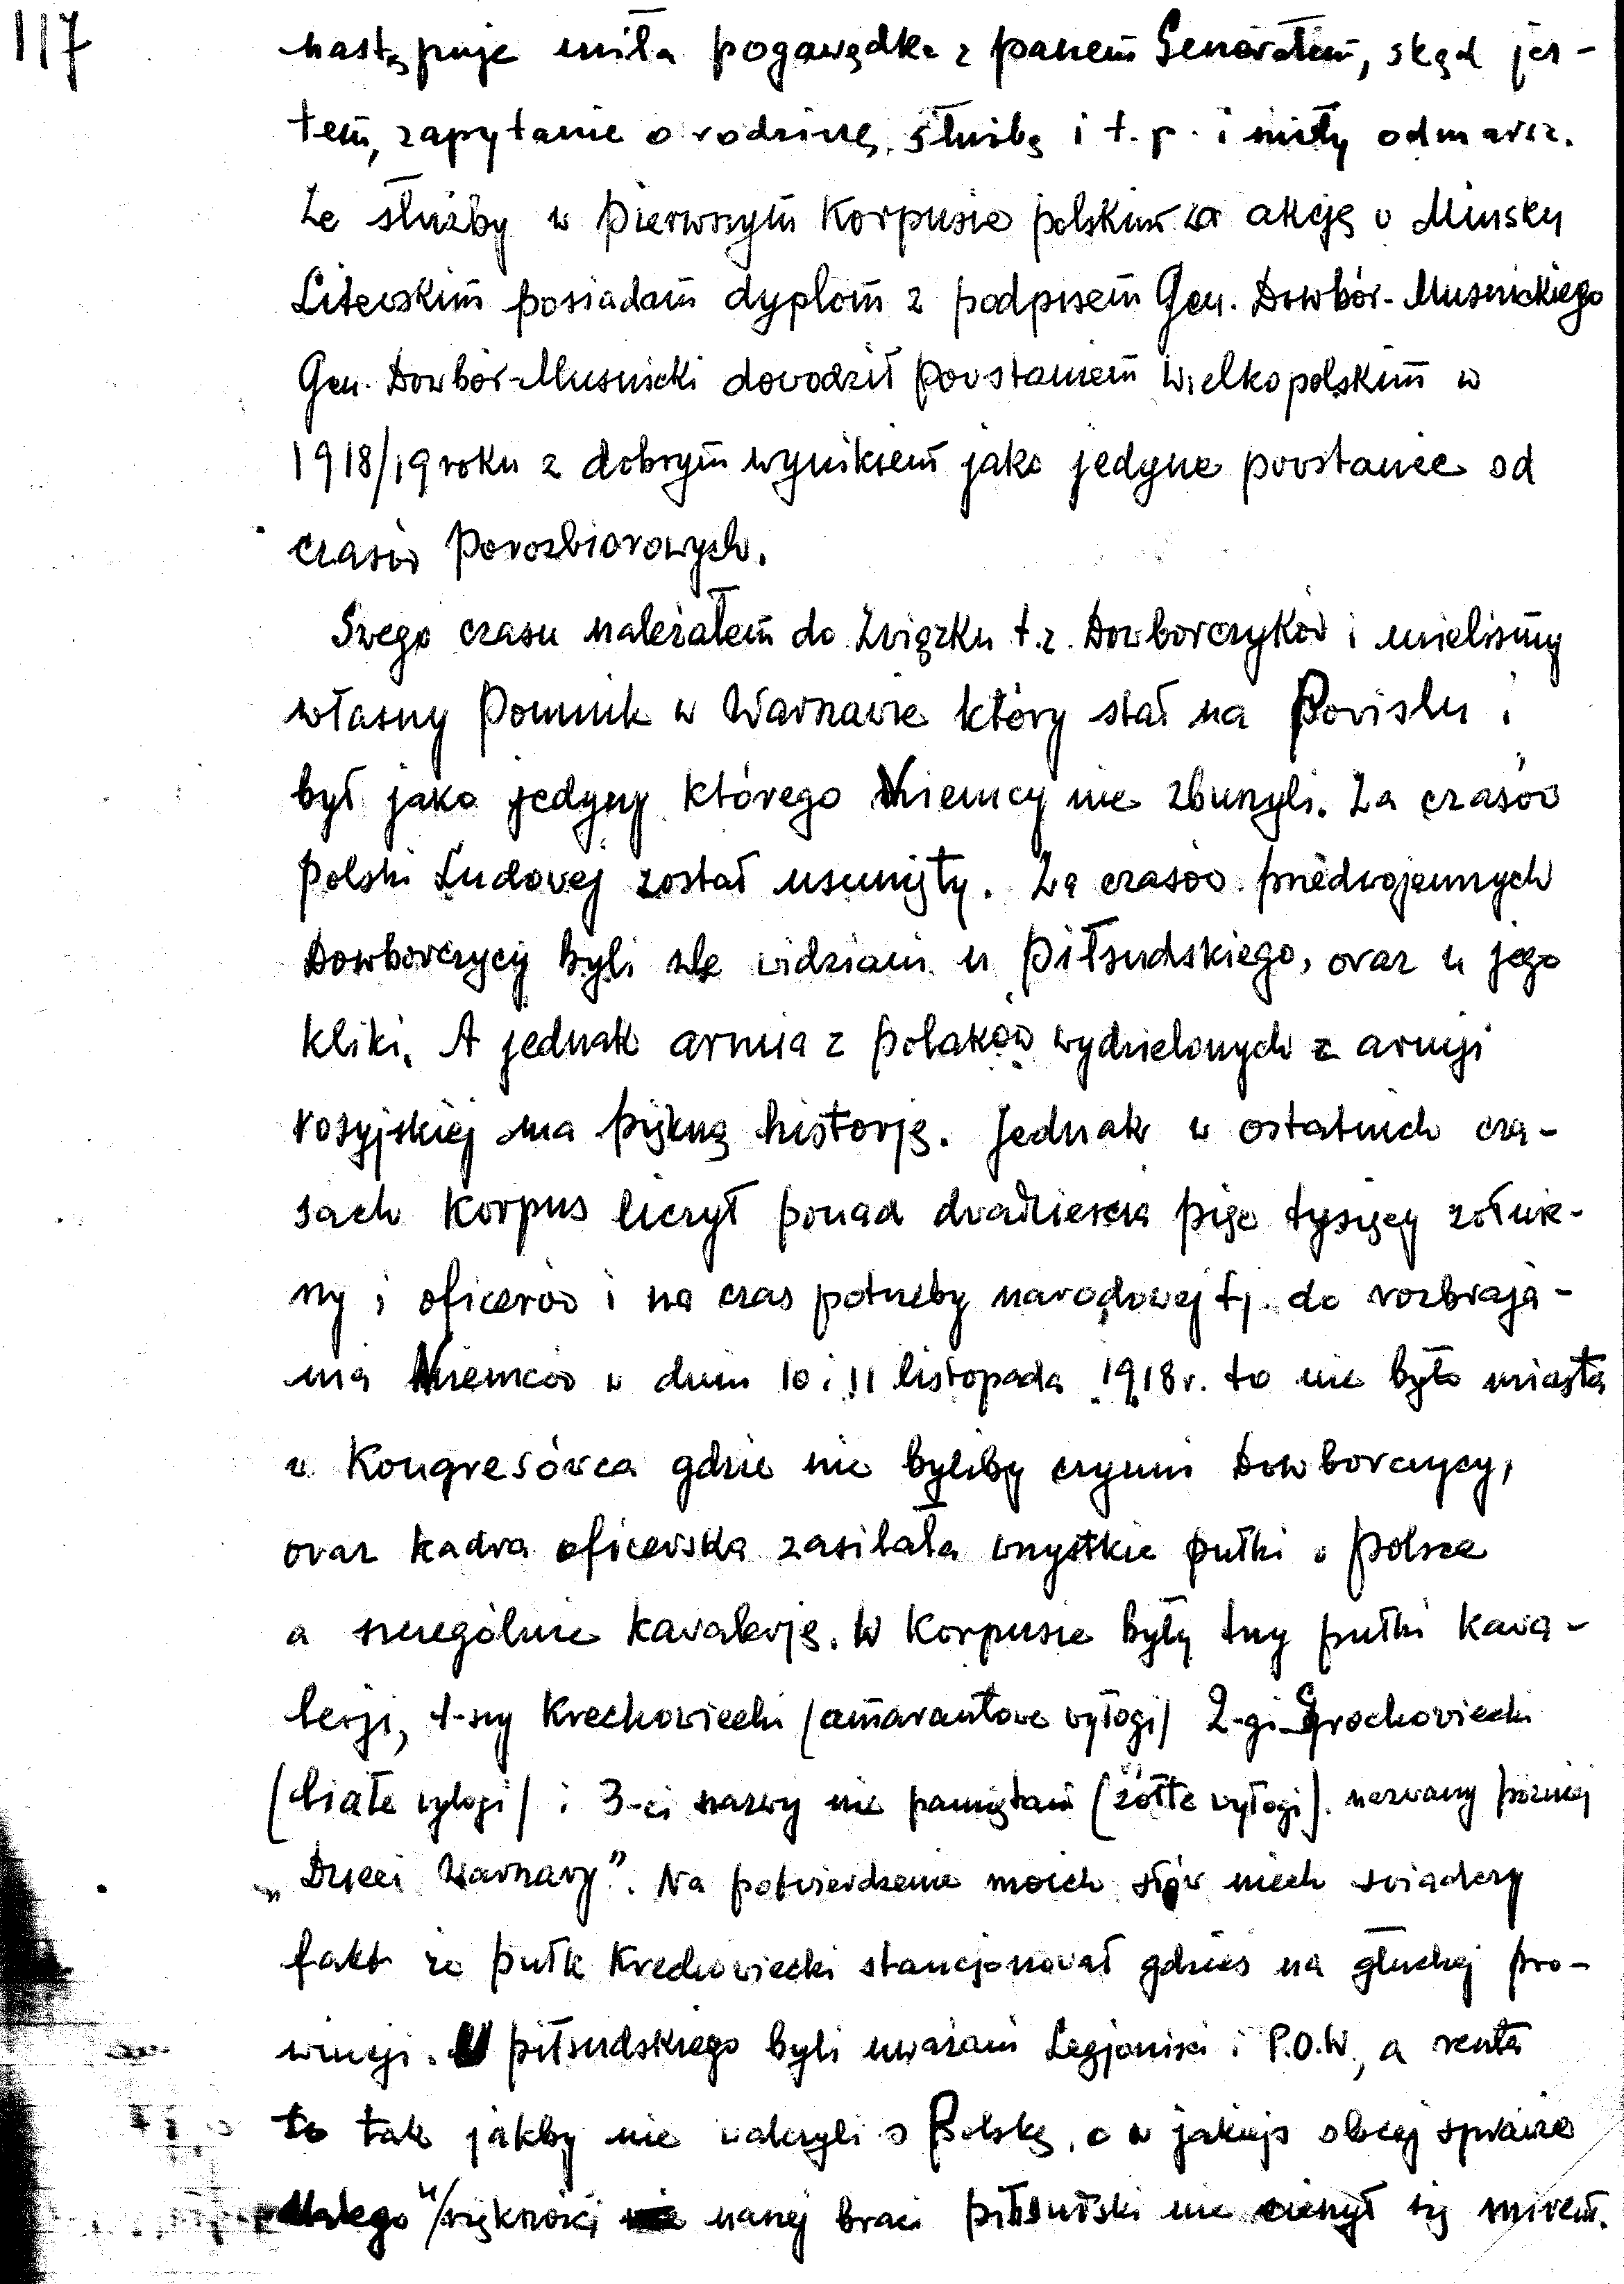 117
następuje miła pogawędka z panem Generałem, skąd jes-
tem, zapytanie o rodzinę, służbę i t.p. i miły odmarsz.
Ze służby w Pierwszym Korpusie polskim za akcję w Mińsku
Litewskim posiadam dyplom z podpisem Gen. Dowbór-Muśnickiego
Gen. Dowbór-Muśnicki dowodził powstaniem Wielkopolskim w
1918/19 roku z dobrym wynikiem jako jedyne powstanie od
czasów porozbiorowych.
Swego czasu należałem do Związku t.z. Dowborczyków i mieliśmy
własny Pomnik w Warszawie który stał na Powiślu i
był jako jedyny którego Niemcy nie zburzyli. Za czasów
Polski Ludowej został usunięty. Za czasów przedwojennych
Dowborczycy byli źle widziani u Piłsudskiego, oraz u jego
kliki. A jednak armia z polaków wydzielonych z armji
rosyjskiej ma piękną historję. Jednak w ostatnich cza-
sach Korpus liczył ponad dwadzieścia pięć tysięcy żołnie-
rzy i oficerów i na czas potrzeby narodowej tj. do rozbraja-
nia Niemców w dniu 10 i 11 listopada 1918 r. to nie było miasta
w Kongresówce gdzie nie byliby czynni Dowborczycy,
oraz kadra oficerska zasilała wszystkie pułki w Polsce
a szczególnie kawalerję. W Korpusie były trzy pułki kawa-
lerji, 1-szy Krechowiecki /amarantowe wyłogi/ 2-gi Grochowiecki
/białe wyłogi/ i 3-ci nazwy nie pamiętam (żółte wyłogi). nazwany później
„Dzieci Warszawy". Na potwierdzenie moich słów niech świadczy
fakt że pułk Krechowiecki stancjonował gdzieś na głuchej pro-
wincji. U Piłsudskiego byli uważani Legjoniści i P.O.W., a reszta
to tak jakby nie walczyli o Polskę, a w jakiejś obcej sprawie
dlatego u/większości naszej braci Piłsudski nie cieszył się mirem.